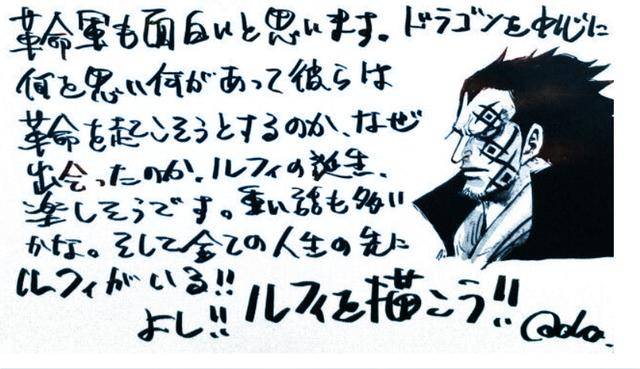 革命軍も面白いと思います。ドラゴンをめじに
何を思い何があって彼らは
革命を起こそうとするのか、なぜ
出会ったのか。ルフィの誕生、
楽しそうです。重い話も多い
かな。そして全ての人生の先に
ルフィがいる!!
よし!! ルフィを描こう!!